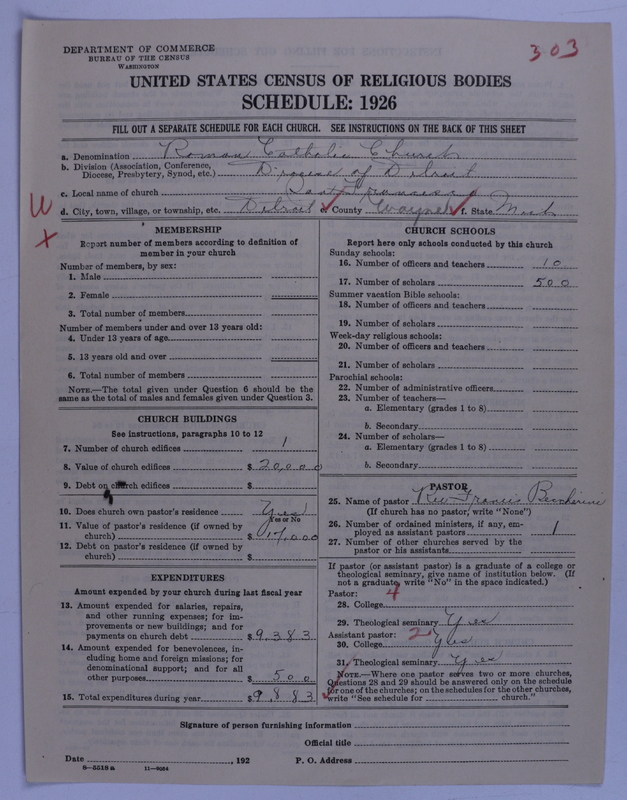 DEPARTMENT OF COMMERCE
BUREAU OF THE CENSUS
WASHINGTON
303
UNITED STATES CENSUS OF RELIGIOUS BODIES
SCHEDULE: 1926
FILL OUT A SEPARATE SCHEDULE FOR EACH CHURCH. SEE INSTRUCTIONS ON THE BACK OF THIS SHEET
a. Denomination Roman Catholic Church
b. Division (Association, Conference, Diocese, Presbytery, Synod, etc.) Diocese of Detroit
c. Local name of church San Francesco
W d. City, town, village, or township, etc. Detroit e. County Wayne f. State Mich
X
MEMBERSHIP
Report number of members according to definition of
member in your church
Number of members, by sex:
1. Male
2. Female
3. Total number of members
Number of members under and over 13 years old:
4. Under 13 years of age
5. 13 years old and over
6. Total number of members
NOTE.—The total given under Question 6 should be
same as the total of males and females given under Question 3.
CHURCH BUILDINGS
See instructions, paragraphs 10 to 12
7. Number of church edifices 1
8. Value of church edifices $ 20,000
9. Debt on church edifices $
10. Does church own pastor's residence Yes
Yes or No
11. Value of pastor's residence (if owned by
church) $ 17,000
12. Debt on pastor's residence (if owned by
church) $
EXPENDITURES
Amount expended by your church during last fiscal year
13. Amount expended for salaries, repairs,
and other running expenses; for im-
provements or new buildings; and for
payments on church debt $ 9383
14. Amount expended for benevolences, in-
cluding home and foreign missions; for
denominational support; and for all
other purposes $ 500
15. Total expenditures during year $ 9883
CHURCH SCHOOLS
Report here only schools conducted by this church
Sunday schools:
16. Number of officers and teachers 10
17. Number of scholars 500
Summer vacation Bible schools:
18. Number of officers and teachers
19. Number of scholars
Week-day religious schools:
20. Number of officers and teachers
21. Number of scholars
Parochial schools:
22. Number of administrative officers
23. Number of teachers—
a. Elementary (grades 1 to 8)
b. Secondary
24. Number of scholars—
a. Elementary (grades 1 to 8)
b. Secondary
PASTOR
25. Name of pastor Rev Francis
(If church has no pastor, write "None")
26. Number of ordained ministers, if any, em-
ployed as assistant pastors 1
27. Number of other churches served by the
pastor or his assistants
If pastor (or assistant pastor) is a graduate of a college or
theological seminary, give name of institution below. (If
not a graduate, write "No" in the space indicated.)
Pastor: 4
28. College
29. Theological seminary Yes
Assistant pastor: 2
30. College Yes
31. Theological seminary Yes
NOTE.—Where one pastor serves two or more churches,
Questions 28 and 29 should be answered only on the schedule
for one of the churches; on the schedules for the other churches,
write "See schedule for church."
Signature of person furnishing information
Official title
Date , 192 P. O. Address
8—5518 a 11—9054